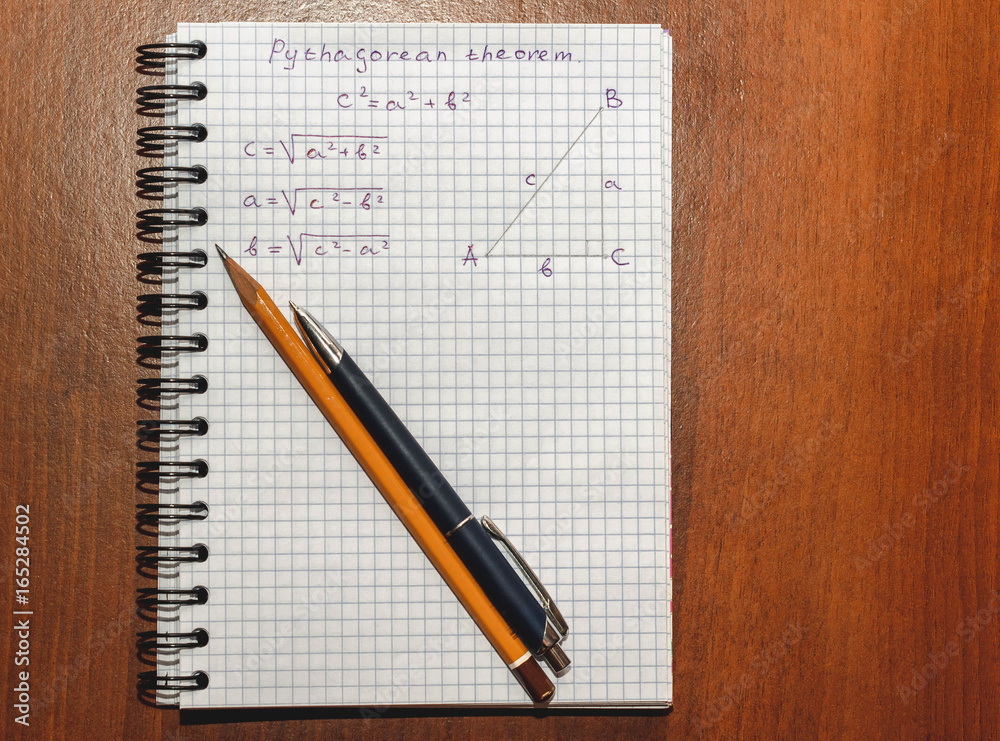 Pythagorean theorem.
c² = a² + b²
c = √a² + b²
a = √c² - b²
b = √c² - a²
B
c
a
A
b
C
Adobe Stock | #165284502